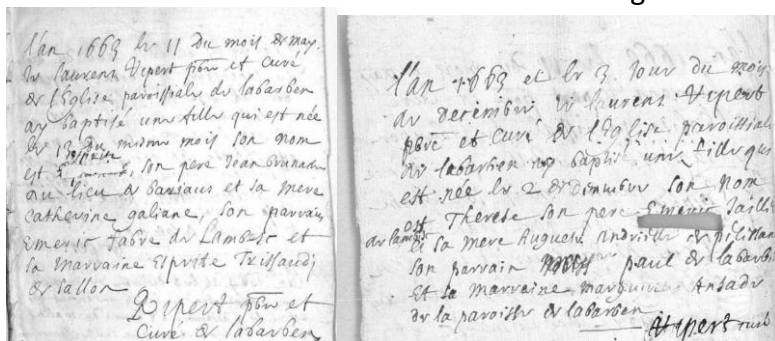 l'an 1663 le 11 du mois de may
Ie laurent Vipert pbre et curé
de l'Eglise paroissiale de labarben
ay baptisé une fille qui est née
le du mesme mois son nom
est son pere Jean
du lieu de et sa mere
catherine galiane, son parrain
Emeric fabre de Lambesc et
sa marraine Esprite
de sallon
pbre et
Curé de labarben
l'an 1663 et le 3 Jour du mois
de decembre Ie laurent Vipert
pbre et Curé de l'Eglise paroissiale
de labarben ay baptisé une fille qui
est née le 2 de decembre son Nom
est Therese son pere Emeric
de lambesc et sa mere de
son parrain paul de labarben
Et sa Marraine
de la paroisse de labarben
Vipert curé